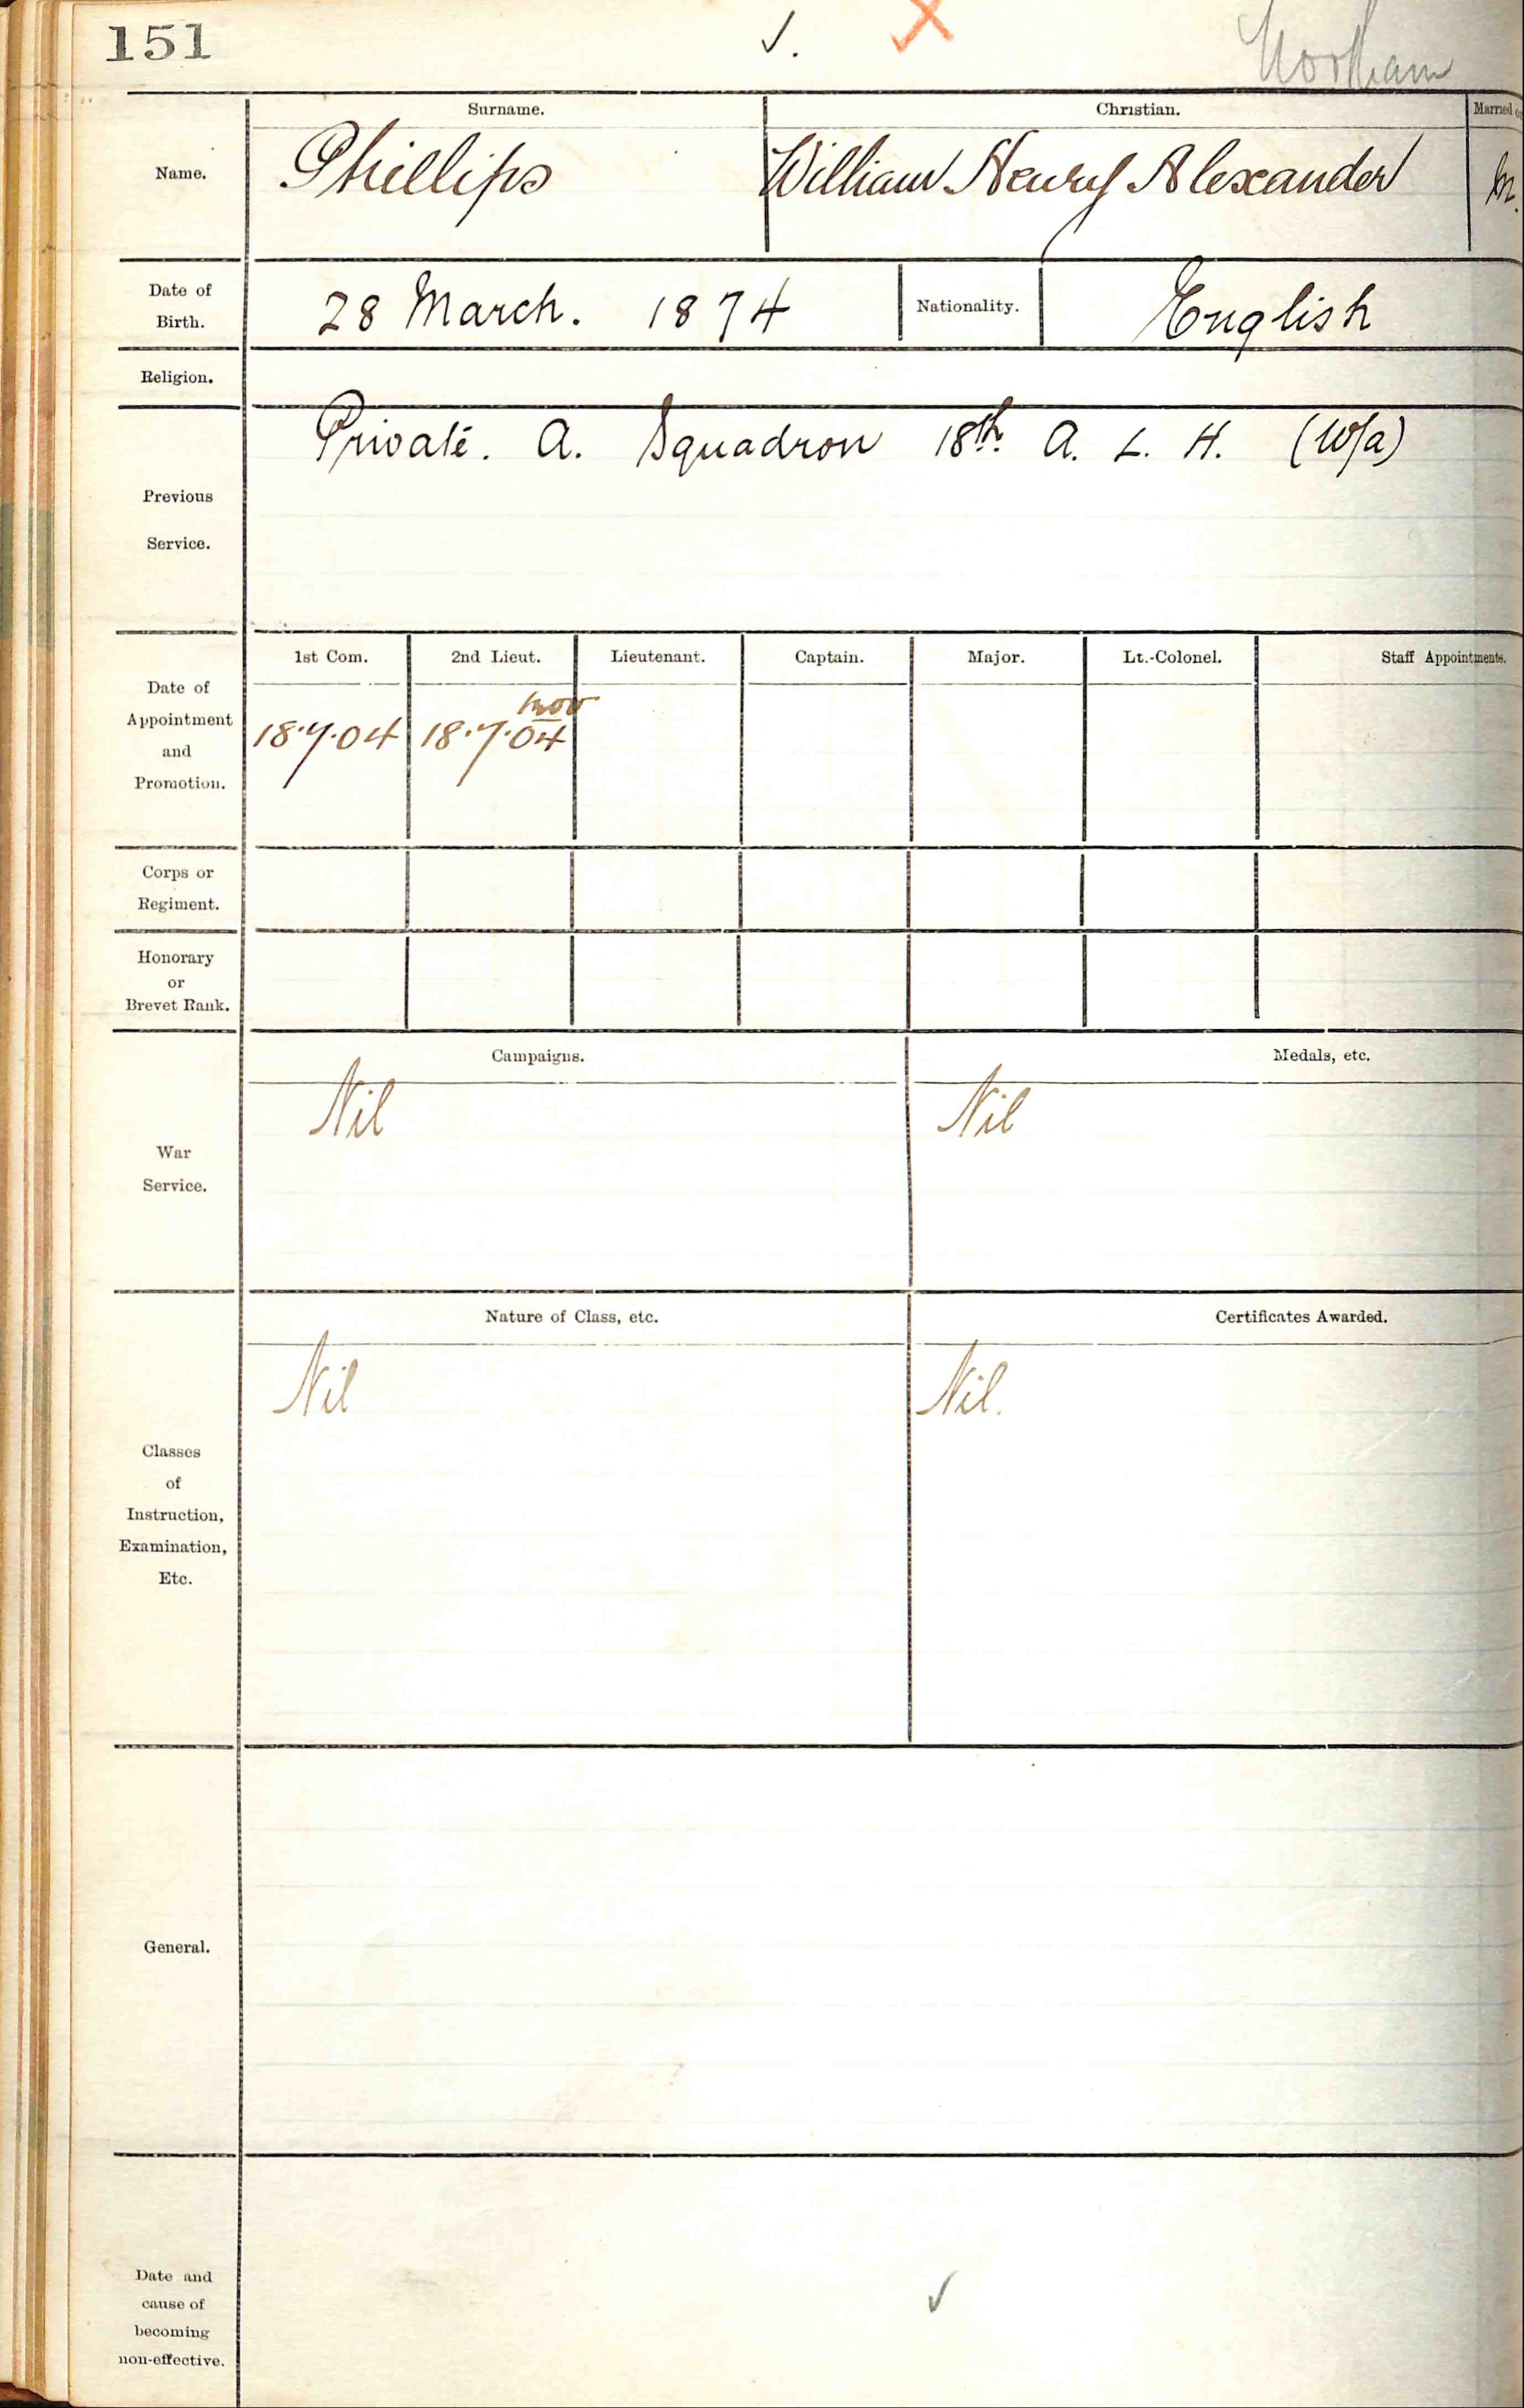 151
Northam
Surname.
Christian.
Married or
Name.
Phillips
William Henry Alexander
M.
Date of
Birth.
28 March. 1874
Nationality.
English
Religion.
Previous
Service.
Private. A. Squadron 18th. A. L. H. (W/a)
1st Com.
2nd Lieut.
Lieutenant.
Captain.
Major.
Lt.-Colonel.
Staff Appointments.
Date of
Appointment
and
Promotion.
18.7.04
18.7.04
Corps or
Regiment.
Honorary
or
Brevet Rank.
Campaigns.
Medals, etc.
War
Service.
Nil
Nil
Nature of Class, etc.
Certificates Awarded.
Nil
Nil.
Classes
of
Instruction,
Examination,
Etc.
General.
Date and
cause of
becoming
non-effective.